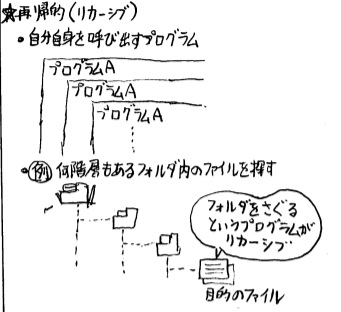 ★再帰的(リカーシブ)
・自分自身を呼び出すプログラム
プログラムA
プログラムA
プログラムA
・例 何階層もあるフォルダ内のファイルを探す
フォルダをさぐる
というプログラムが
リカーシブ
目的のファイル